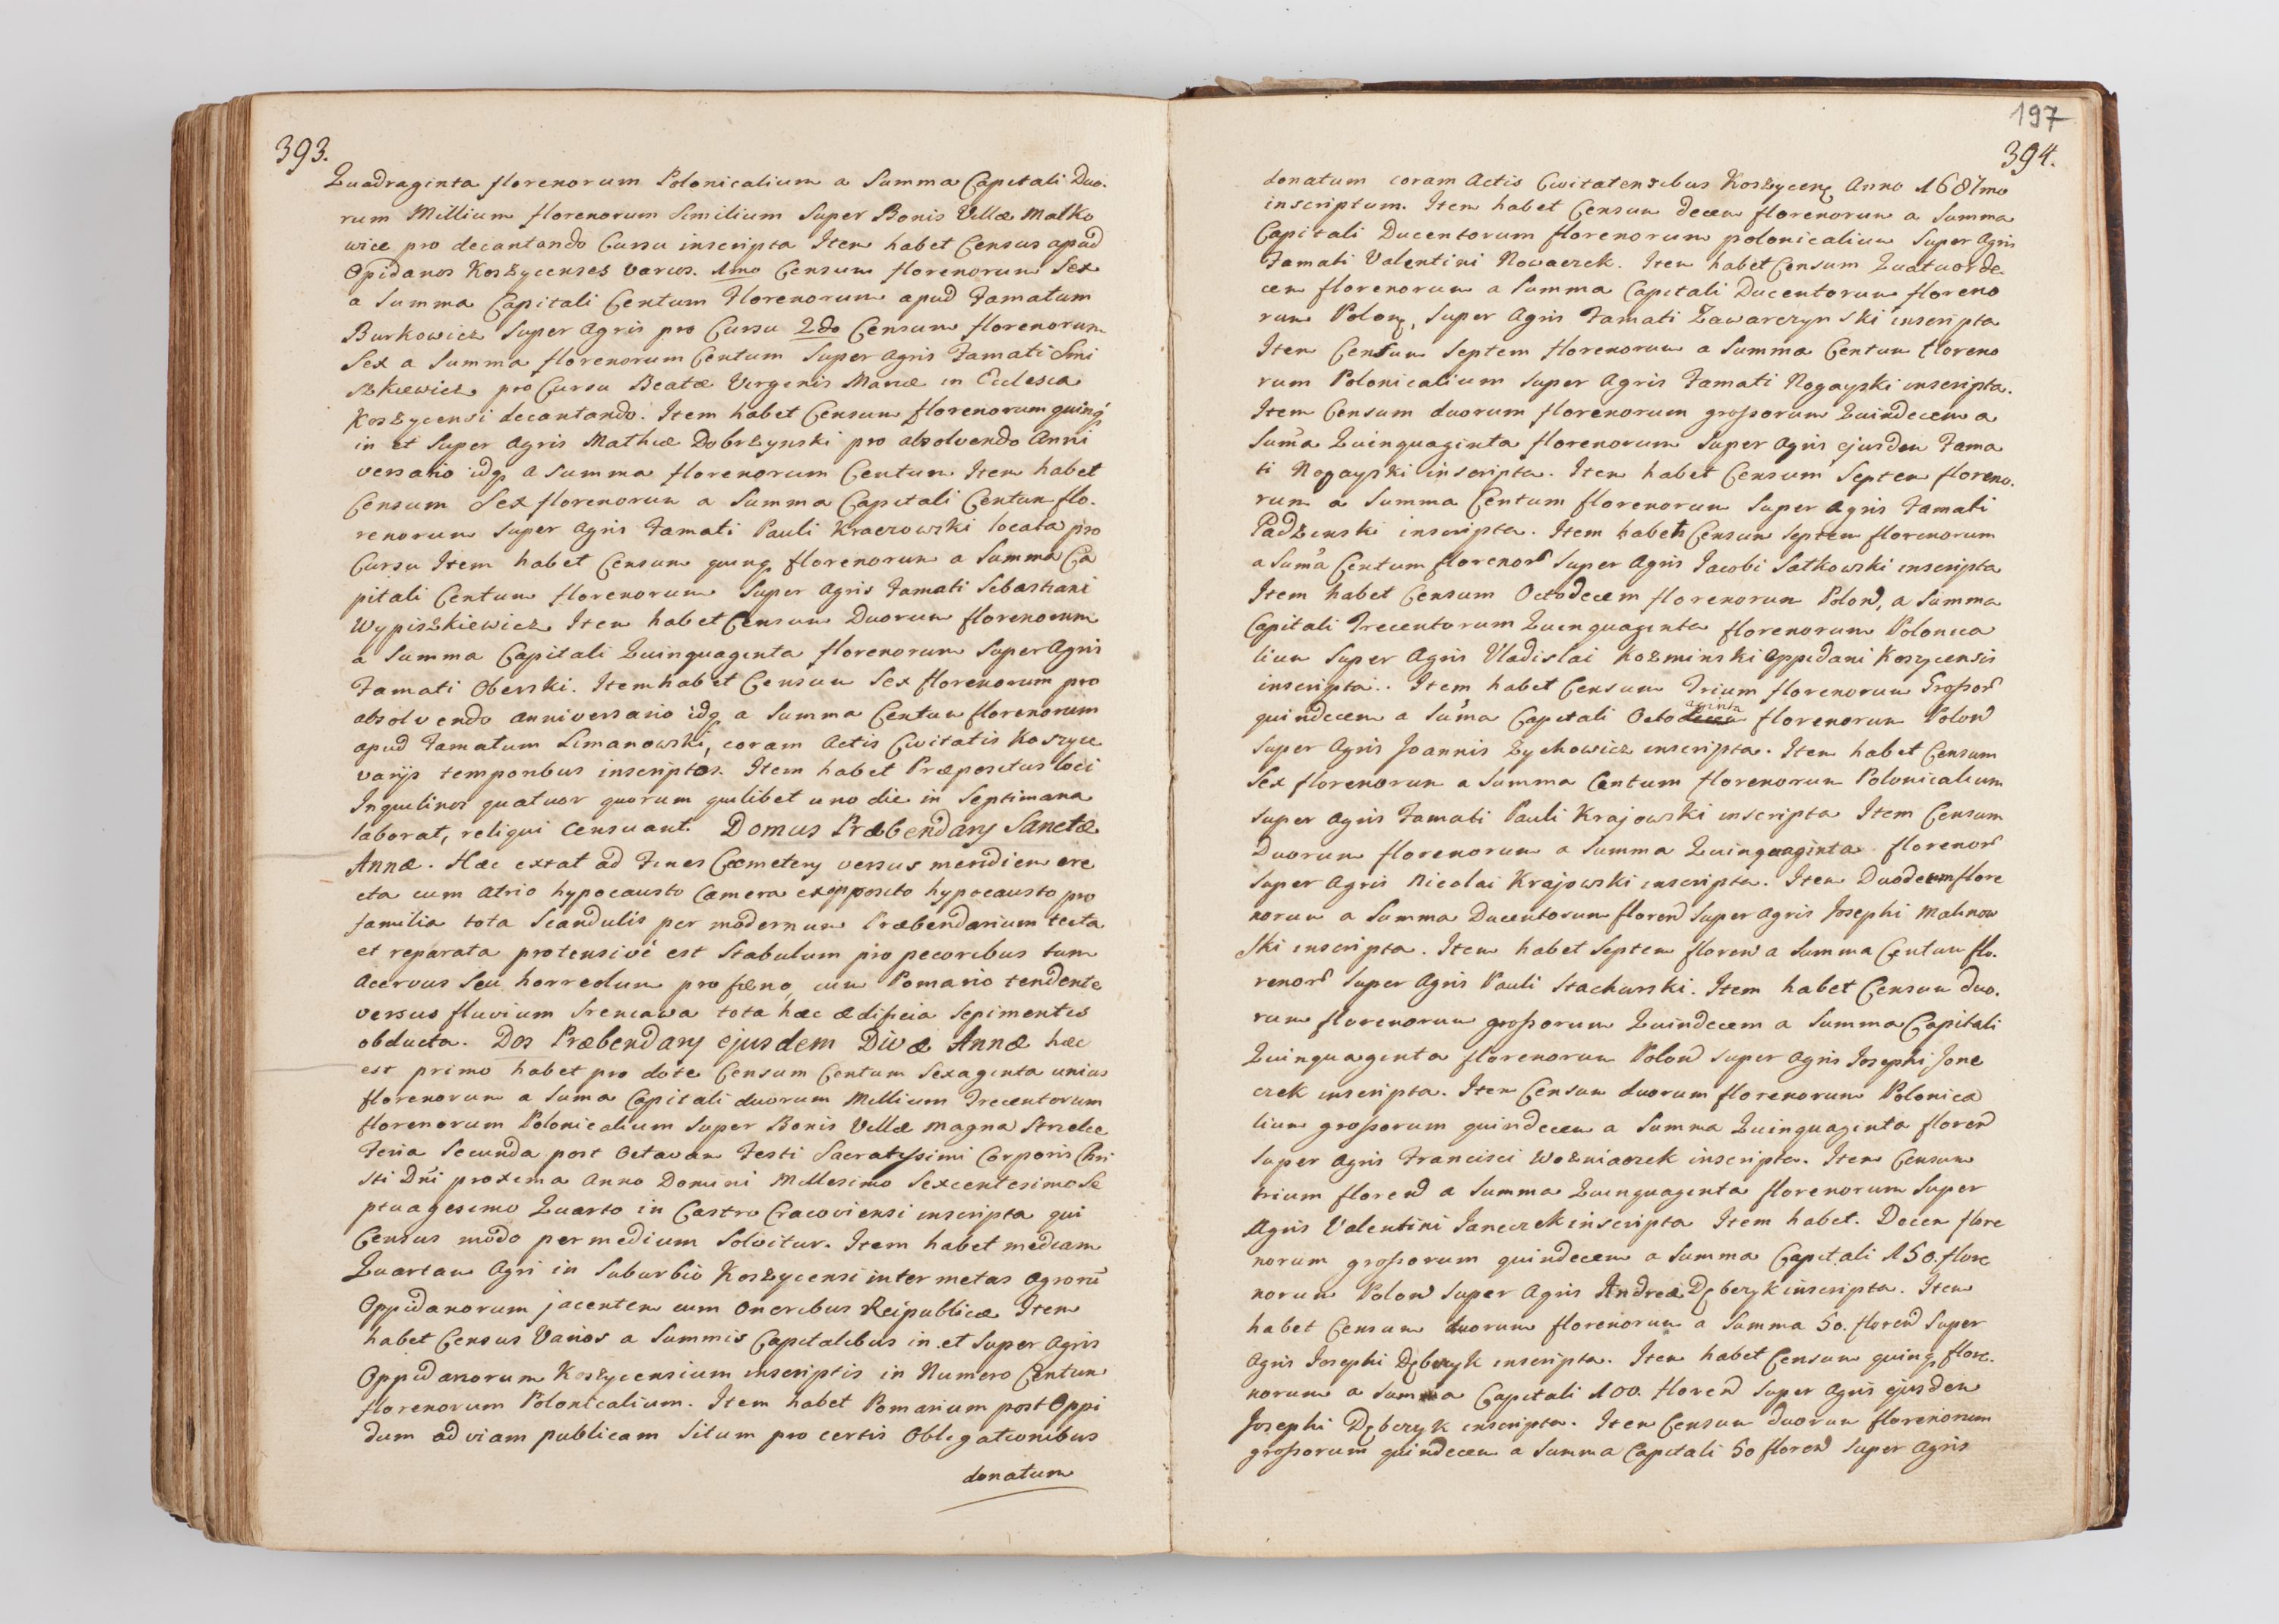 393.
Quadraginta florenorum Polonicalium a Summa Capitali Duo.
rum Millium florenorum Similium Super Bonis Villæ Malko
wice pro decantando Cursu inscripta Item habet Census apud
Opidanos Koszycenses varios. 1mo Censum florenorum Sex
a Summa Capitali Centum Florenorum apud Famatum
Burkowicz Super Agris pro Cursu 2do Censum florenorum
Sex a Summa florenorum Centum Super Agris Famati Smi
szkiewicz pro Cursu Beatæ Virginis Mariæ in Ecclesia
Koszycensi decantando. Item habet Censum florenorum quinq
in et Super Agris Mathiæ Dobrzynski pro absolvendo Anni
versario idq a Summa florenorum Centum Item habet
Censum Sex florenorum a Summa Capitali Centum flo.
renorum Super Agris Famati Pauli Kraczowski locata pro
Cursu Item habet Censum quinq florenorum a Summa Ca
pitali Centum florenorum Super Agris Famati Sebastiani
Wypiszkiewicz Item habet Censum Duorum florenorum
a Summa Capitali Quinquaginta florenorum Super Agris
Famati Oberski. Item habet Censum Sex florenorum pro
absolvendo anniversario idq a Summa Centum florenorum
apud Famatum Limanowski, coram Actis Civitatis Koszyce
varijs temporibus inscriptos. Item habet Præpositus loci
Inquilinos quatuor quorum quilibet uno die in Septimana
laborat, reliqui Censuant. Domus Præbendarij Sanctæ
Annæ. Hæc extat ad Fines Cæmeterij versus meridiem ere
cta cum Atrio hypocausto Camera exopposito hypocausto pro
familia tota Scandulis per modernum Præbendarium tecta
et reparata protensive est Stabulum pro pecoribus tum
Acervus Seu horreolum pro fæno, cum Pomario tendente
versus fluvium Sreniawa tota hæc ædificia Sepimentis
obducta. Dos Præbendarij ejusdem Divæ Annæ hæc
est primo habet pro dote Censum Centum Sexaginta unius
florenorum a Suma Capitali duorum Millium Trecentorum
florenorum Polonicalium Super Bonis Villæ Magna Strzelce
Feria Secunda post Octavam Festi Sacratissimi Corporis Chri
sti Dni proxima Anno Domini Millesimo Sexcentesimo Se
ptuagesimo Quarto in Castro Cracoviensi inscripta qui
Census modo per medium Solvitur. Item habet mediam
Quartam Agri in Suburbio Koszycensi inter metas Agrorũ
Oppidanorum jacentem cum Oneribus Reipublicæ Item
habet Census Varios a Summis Capitalibus in et Super Agris
Oppidanorum Koszycensium inscriptis in Numero Centum
florenorum Polonicalium. Item habet Pomarium post Oppi
dum ad viam publicam Situm pro certis Obligationibus
donatum
197
394.
donatum coram Actis Civitatensibus Koszycen Anno 1687mo
inscriptum. Item habet Censum decem florenorum a Summa
Capitali Ducentorum florenorum polonicalium Super Agris
Famati Valentini Nowaczek. Item habet Censum Quatuorde
cem florenorum a Summa Capitali Ducentorum floreno
rum Polon, Super Agris Famati Zawarczynski inscripta
Item Censum Septem florenorum a Summa Centum floreno
rum Polonicalium Super Agris Famati Nogayski inscripta.
Item Censum duorum florenorum grossorum Quindecem a
Suma Quinquaginta florenorum Super Agris ejusdem Fama
ti Nogayski inscripta. Item habet Censum Septem floreno.
rum a Summa Centum florenorum Super Agris Famati
Padzenski inscripta. Item habet Censum Septem florenorum
a Suma Centum florenor Super Agris Jacobi Satkowski inscripta
Item habet Censum Octodecem florenorum Polon, a Summa
Capitali Trecentorum Quinquaginta florenorum Polonica
lium Super Agris Vladislai Kozminski Oppidani Koszycensis
inscripta. Item habet Censum Trium florenorum Grossor
quindecem a Suma Capitali Octodecem aginta florenorum Polon
Super Agris Joannis Zychowicz inscripta. Item habet Censum
Sex florenorum a Summa Centum florenorum Polonicalium
Super Agris Famati Pauli Krajowski inscripta Item Censum
Duorum florenorum a Summa Quinquaginta florenor
Super Agris Nicolai Krajowski inscripta. Item Duodecem flore
norum a Summa Ducentorum floren Super Agris Josephi Malinow
ski inscripta. Item habet Septem floren a Summa Centum flo.
renor Super Agris Pauli Stachurski. Item habet Censum duo.
rum florenorum grossorum Quindecem a Summa Capitali
Quinquaginta florenorum Polon Super Agris Josephi Jane
czek inscripta. Item Censum duorum florenorum Polonica
lium grossorum quindecem a Summa Quinquaginta floren
Super Agris Francisci Wozniaczek inscripta. Item Censum
trium floren a Summa Quinquaginta florenorum Super
Agris Valentini Janeczek inscripta Item habet. Decem flore
norum grossorum quindecem a Summa Capitali 150. flore
norum Polon Super Agris Andreæ Dęberyk inscripta. Item
habet Censum duorum florenorum a Summa 50. floren Super
Agris Josephi Dęberyk inscripta. Item habet Censum quinq flore.
norum a Summa Capitali 100. floren Super Agris ejusdem
Josephi Dęberyk inscripta. Item Censum duorum florenorum
grossorum quindecem a Summa Capitali 50 floren Super Agris